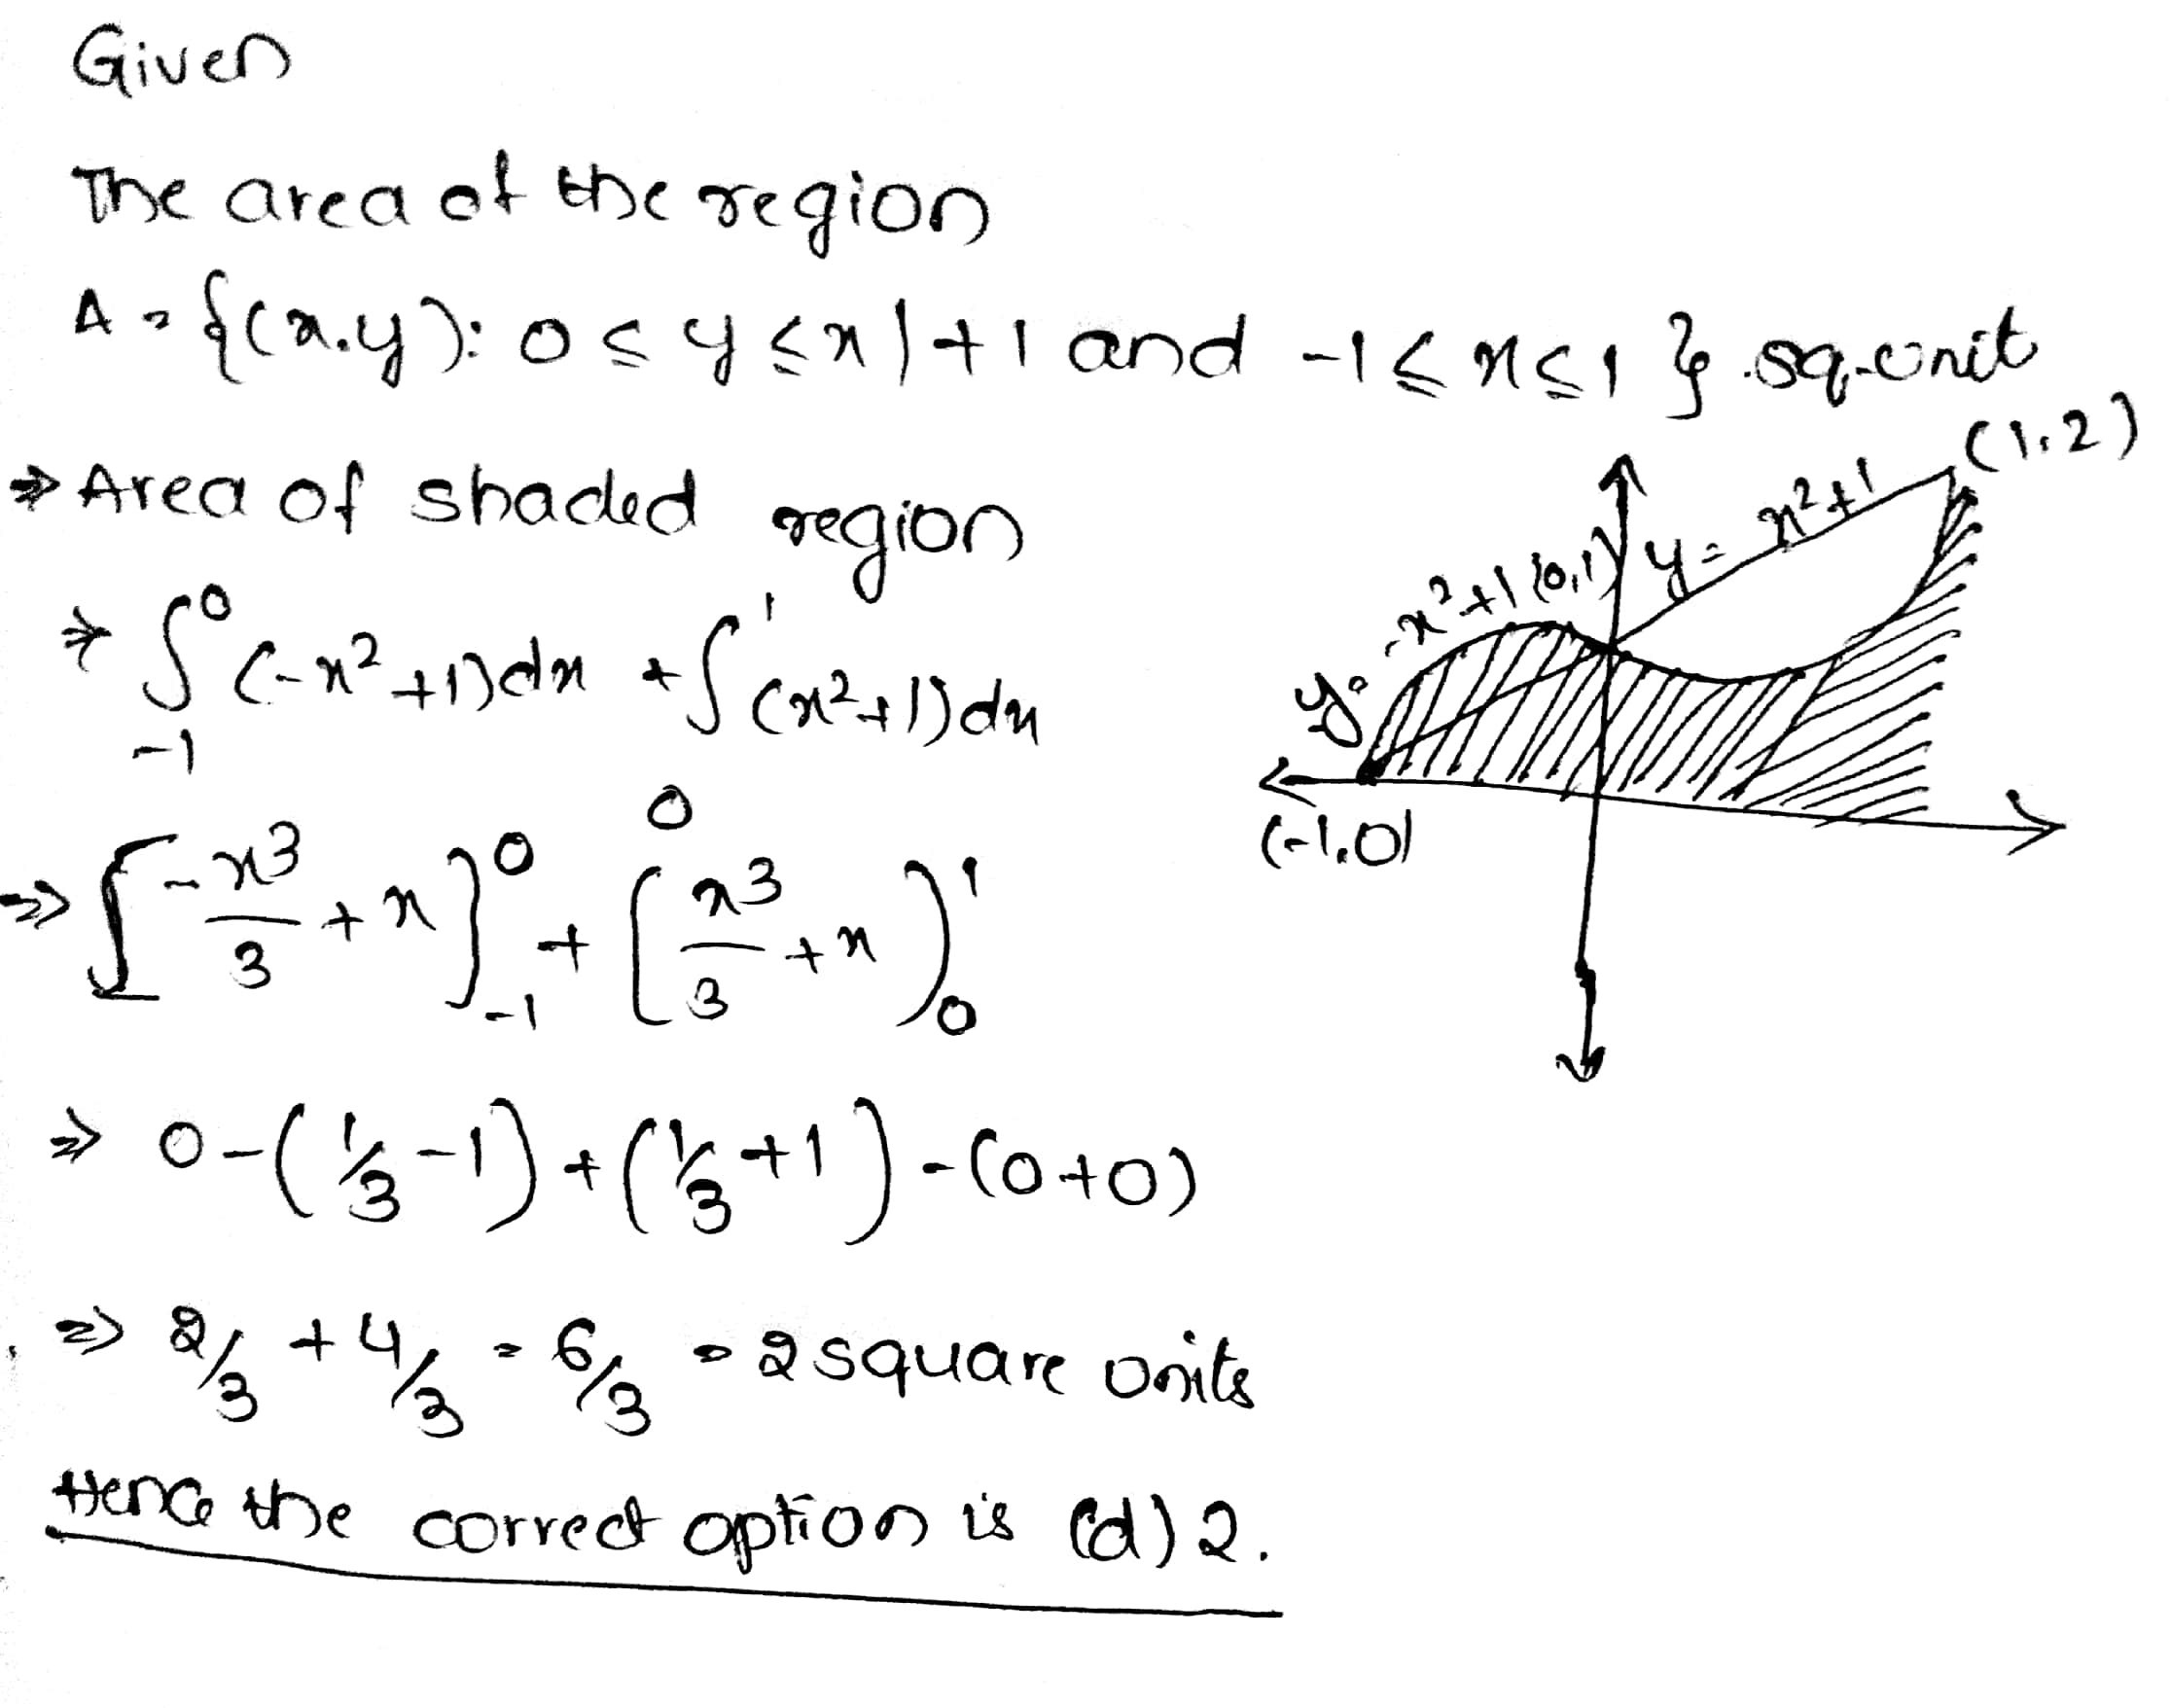 Given
The area of the region
A = {(x.y): 0 ≤ y ≤ x|+1 and -1 ≤ x ≤ 1} .sq.unit
⇒ Area of shaded region
⇒ ∫₋₁⁰ (-x²+1)dx + ∫₀¹ (x²+1)dx
⇒ [-x³/3 + x]₋₁⁰ + [x³/3 + x]₀¹
⇒ 0-(1/3-1)+(1/3+1)-(0+0)
⇒ 2/3 + 4/3 = 6/3 = 2 square units
Hence the correct option is (d) 2.
(1,2)
y = x²+1
(0,1)
y= -x²+1
(-1,0)